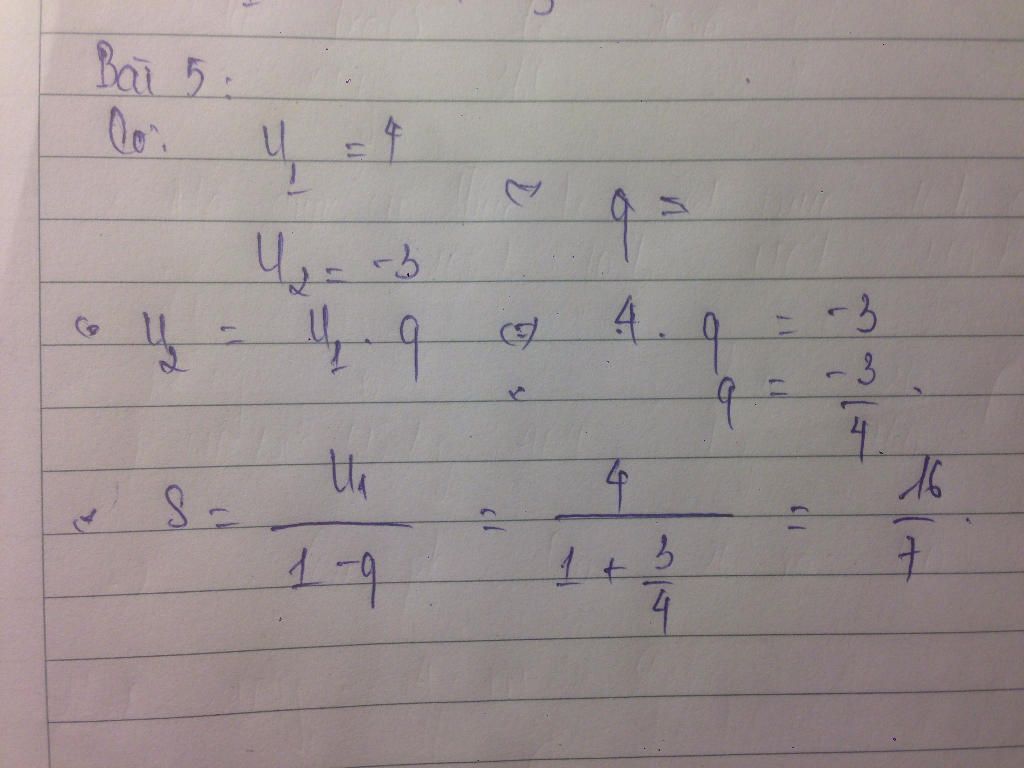 Bài 5:
Có: U₁ = 4
q =
U₂ = -3
U₂ = U₁ . q ⇔ 4 . q = -3
q = -3/4 .
S = U₁/(1 - q) = 4/(1 + 3/4) = 16/7 .